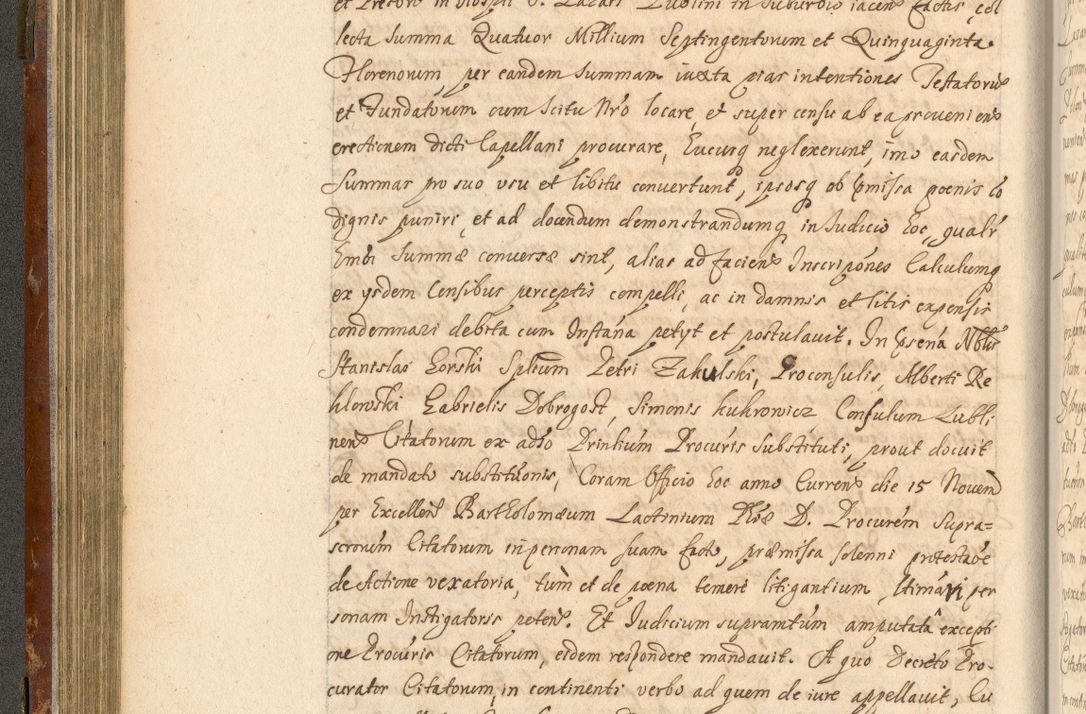 et Precore in Hospli S. Lazari Lublini in Suburbio iacens factis, col
lecta Summa Quatuor Millium Septingentorum et Quinquaginta
Florenorum, per eandem Summam iuxta pias intentiones Testatorum
et Fundatorum cum Scitu Nro locare, et super censu ab ea proueniens
erectionem dicti Capellani procurare, hucusq neglexerunt, imo easdem
Summas pro suo vsu et libitu conuertunt, ipsosq ob pmissa poenis co
dignis puniri, et ad docendum demonstrandumq in Judicio hoc, qualr
hmoi Summæ conuersæ sint, alias ad faciens Inscripónes Calculumq
ex ysdem Censibus perceptis compelli, ac in damnis et litis expensis
condemnari debita cum Instána petyt et postulauit. In psená Nblis
Stanislai Gorski Splium Petri Zakulski, Proconsulis, Alberti Re
klowski Gabrielis Dobrogost, Simonis kukrowicz Consulum Lubli
nens Citatorum ex adso Prinlium Procuris Substituti, prout docuit
de mandato substitutionis, Coram Officio hoc anno Currens die 15 Nouem
per Excellens Bartholomæum Lactinium Phiæ D. Procurém Supra=
scrorúm Citatorum in personam suam facto, præmissa solenni protestaõe
de Actione vexatoria, túm et de poena temere litigantium, ltimávi per
sonam Instigatoris petens. Et Judicium supramtúm amputatâ excepti
one Procúris Citatorum, eidem respondere mandauit. A quo Decreto Pro-
curator Citatorum, in continenti verbo ad quem de iure appellauit, Cu